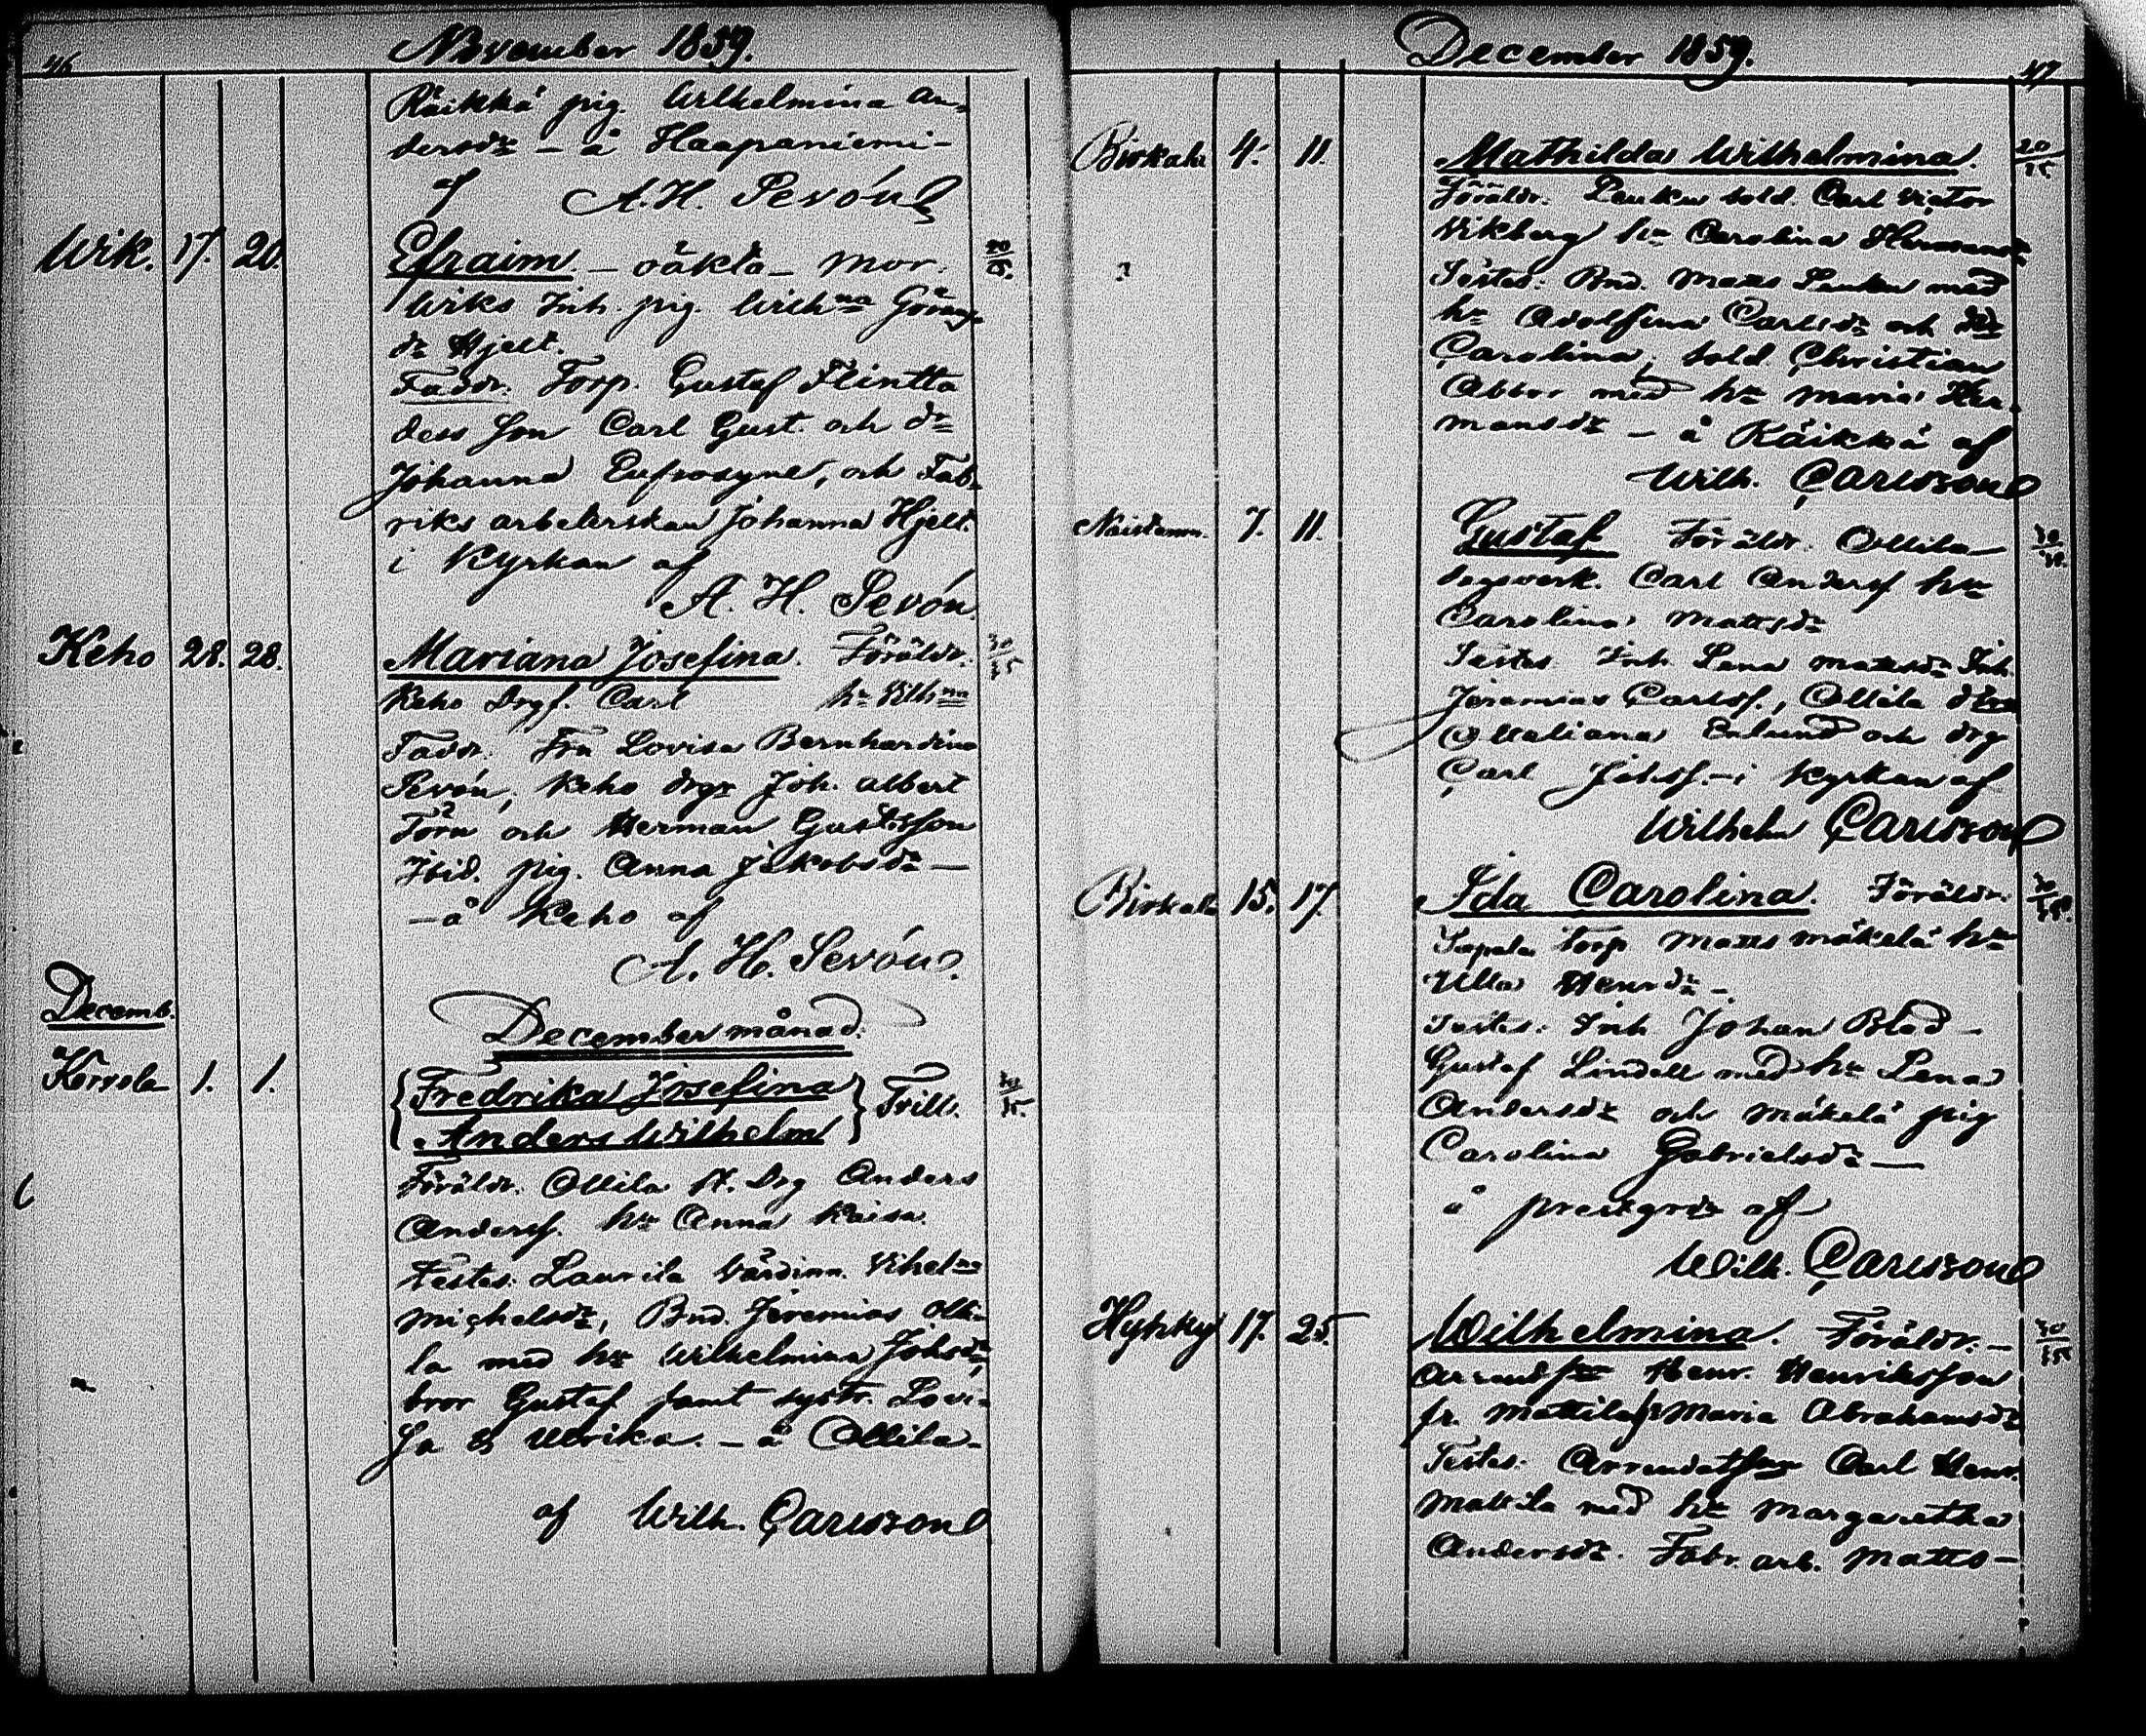 46
November 1859.
Räikkä pig. Wilhelmina An-
dersdr – å Haapaniemi –
af A. H. Sevón
Wik. 17. 20. Efraim – oäkta – Mor.
Wiks Inh. pig. Wilhna Görans
dr Hjelt.
Faddr. Torp. Gustaf Flintta
dess Son Carl Gust. och dr
Johanna Eufrosyne, och Fab-
riks arbeterskan Johanna Hjelt.
i Kyrkan af
A. H. Sevón
Keho 28. 28. Mariana Josefina. Föräldr.
Keho Drgf. Carl hr Vilhna
Faddr. Fru Lovisa Bernhardina
Sevón, Keho drgr Joh. Albert
Törn och Herman Gustafsson
Ibid. pig. Anna Jakobsdr –
– å Keho af
A. H. Sevón.
Decemb.
December månad.
Korvola 1. 1. Fredrika Josefina } Tvill.
Anders Wilhelm
Föräldr. Ollila st. Drg Anders
Andersf. hr Anna Kaisa.
Testes. Laurila Värdinn. Vihelna
Michelsdr, Bnd. Jeremias Olli-
la med hr Wilhelmina Johsdr,
bror Gustaf samt systr. Lovi-
sa & Ulrika. – å Ollila –
af Wilh. Carlsson
December 1859.
47
Birkala 4. 11. Mathilda Wilhelmina. 20/25
Föräldr. Leuku sold. Carl Victor
Vikberg hr Carolina Hermansdr
Testes: Bnd. Matts Leuku med
hr Adolfina Carlsdr och dr
Carolina, sold Christian
Abbor med hr Maria Her-
mansdr – å Räikkä af
Wilh. Carlsson
7. 11. Gustaf Föräldr. Ollila
dagsverk. Carl Andersf hr
Carolina Mattsdr
Testes Inh. Lena Mattsdr Inh.
Jeremias Carlsf., Ollila
Ottiliana Enlund och drg
Carl Johsf. – i Kyrkan af
Wilhelm Carlsson
Birkala 15. 17. Ida Carolina. Föräldr.
Torp Matts Mäkelä hr
Ulla Henrdr –
Testes. Inh Johan Blad –
Gustaf Lindell med hr Lena
Andersdr och Mäkelä pig
Carolina Gabrielsdr –
å prestgrdn af
Wilh. Carlsson
Hyhky 17. 25. Wilhelmina. Föräldr. –
Henr. Henriksson
fr. Mattila hr Maria Abrahamsdr
Testes. Carl Henr.
Mattila med hr Margaretha
Andersdr. Fabr. arb. Matts –